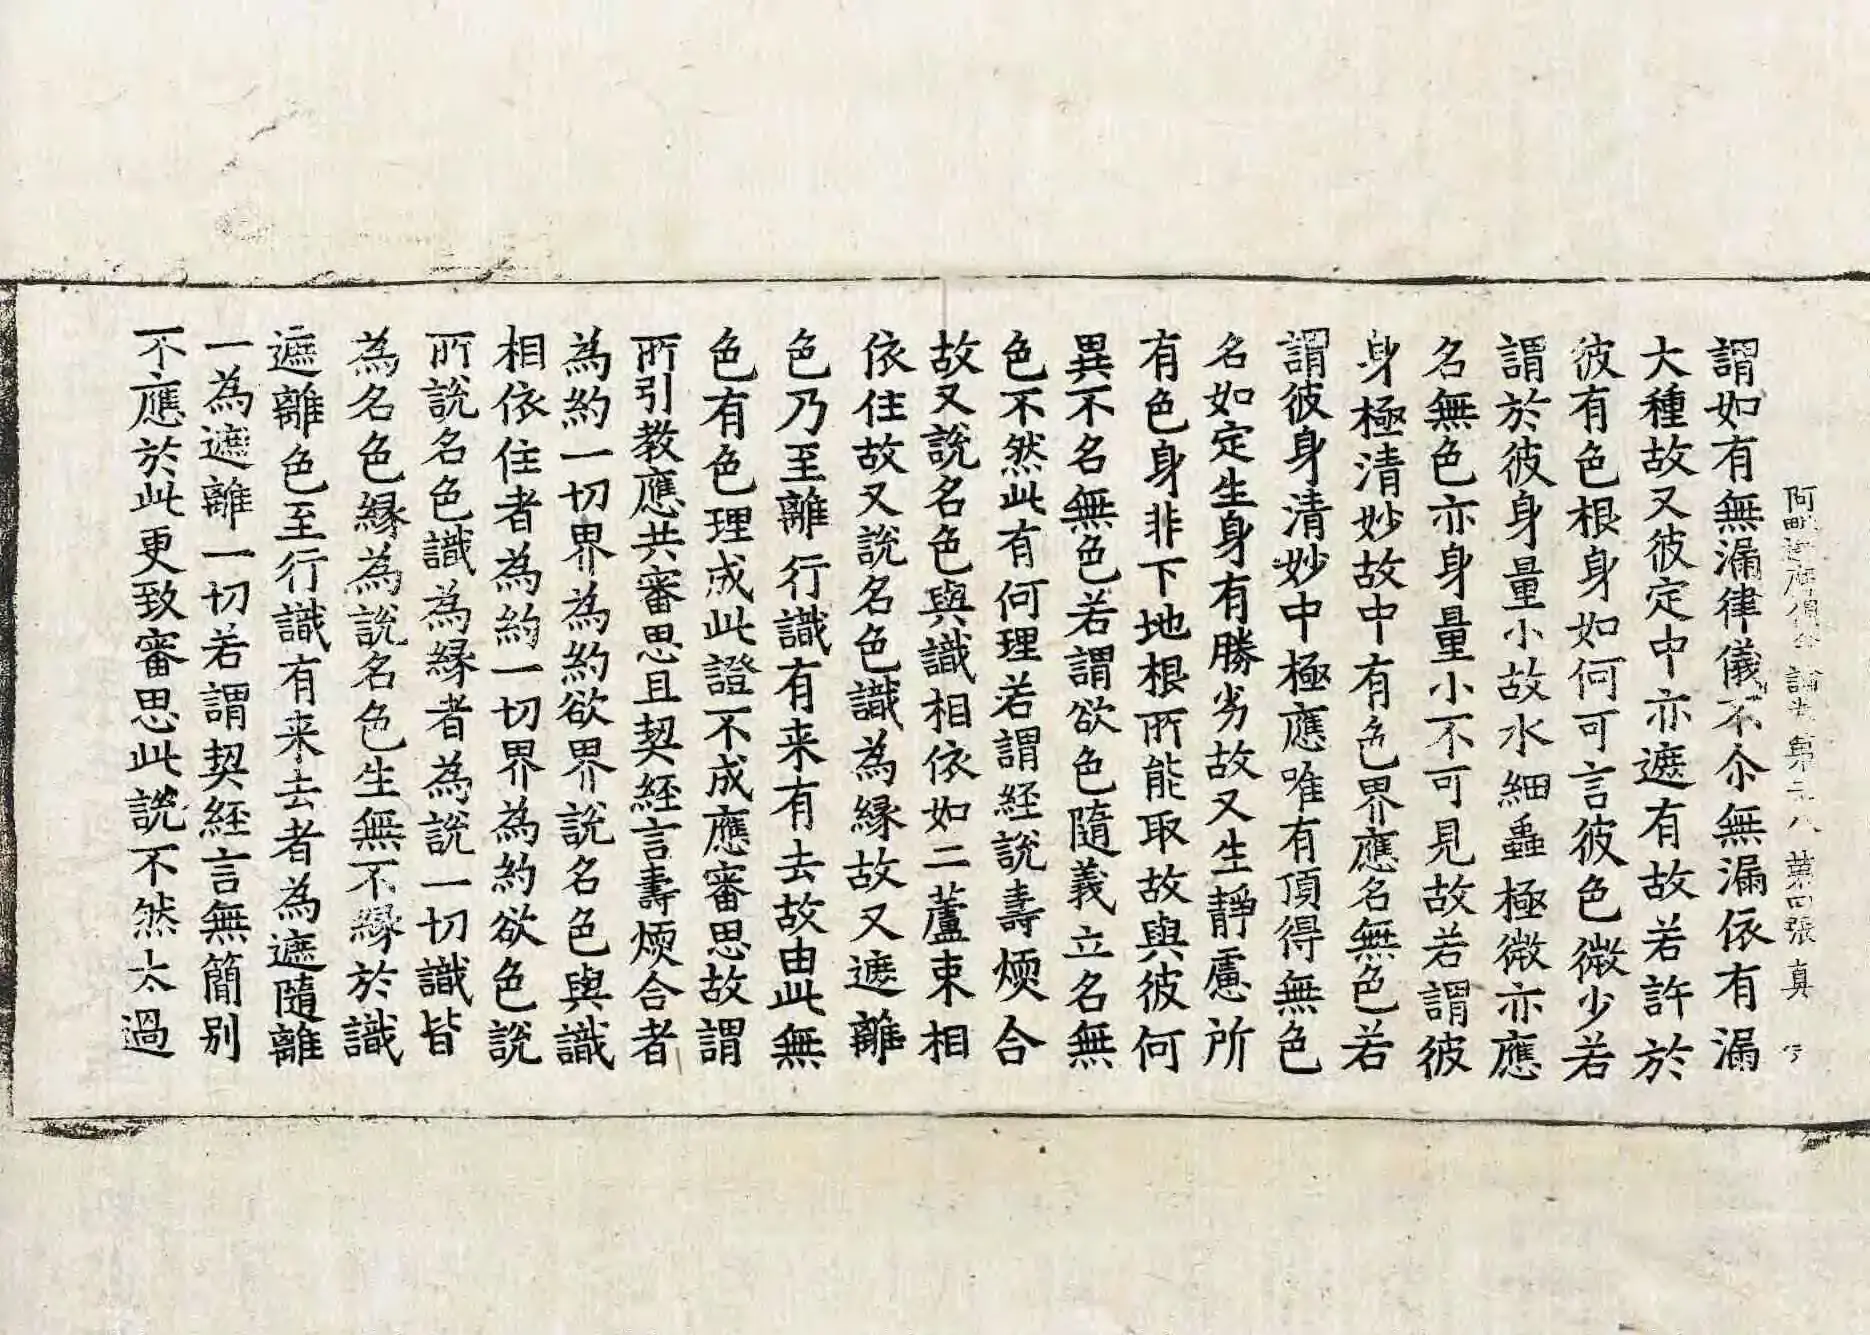 阿毗達磨俱舍論卷第二八　第四張　真
謂如有無漏律儀不尒無漏依有漏
大種故又彼定中亦遮有故若許於
彼有色根身如何可言彼色微少若
謂於彼身量小故水細蟲極微亦應
名無色亦身量小不可見故若謂彼
身極清妙故中有色界應名無色若
謂彼身清妙中極應唯有頂得無色
名如定生身有勝劣故又生靜慮所
有色身非下地根所能取故與彼何
異不名無色若謂欲色隨義立名無
色不然此有何理若謂經說壽煗合
故又說名色與識相依如二蘆束相
依住故又說名色識為緣故又遮離
色乃至離行識有来有去故由此無
色有色理成此證不成應審思故謂
所引教應共審思且契經言壽煗合者
為約一切界為約欲界說名色與識
相依住者為約一切界為約欲色說
所說名色識為緣者為說一切識皆
為名色緣為說名色生無不緣於識
遮離色至行識有来去者為遮隨離
一為遮離一切若謂契經言無簡别
不應於此更致審思此說不然太過